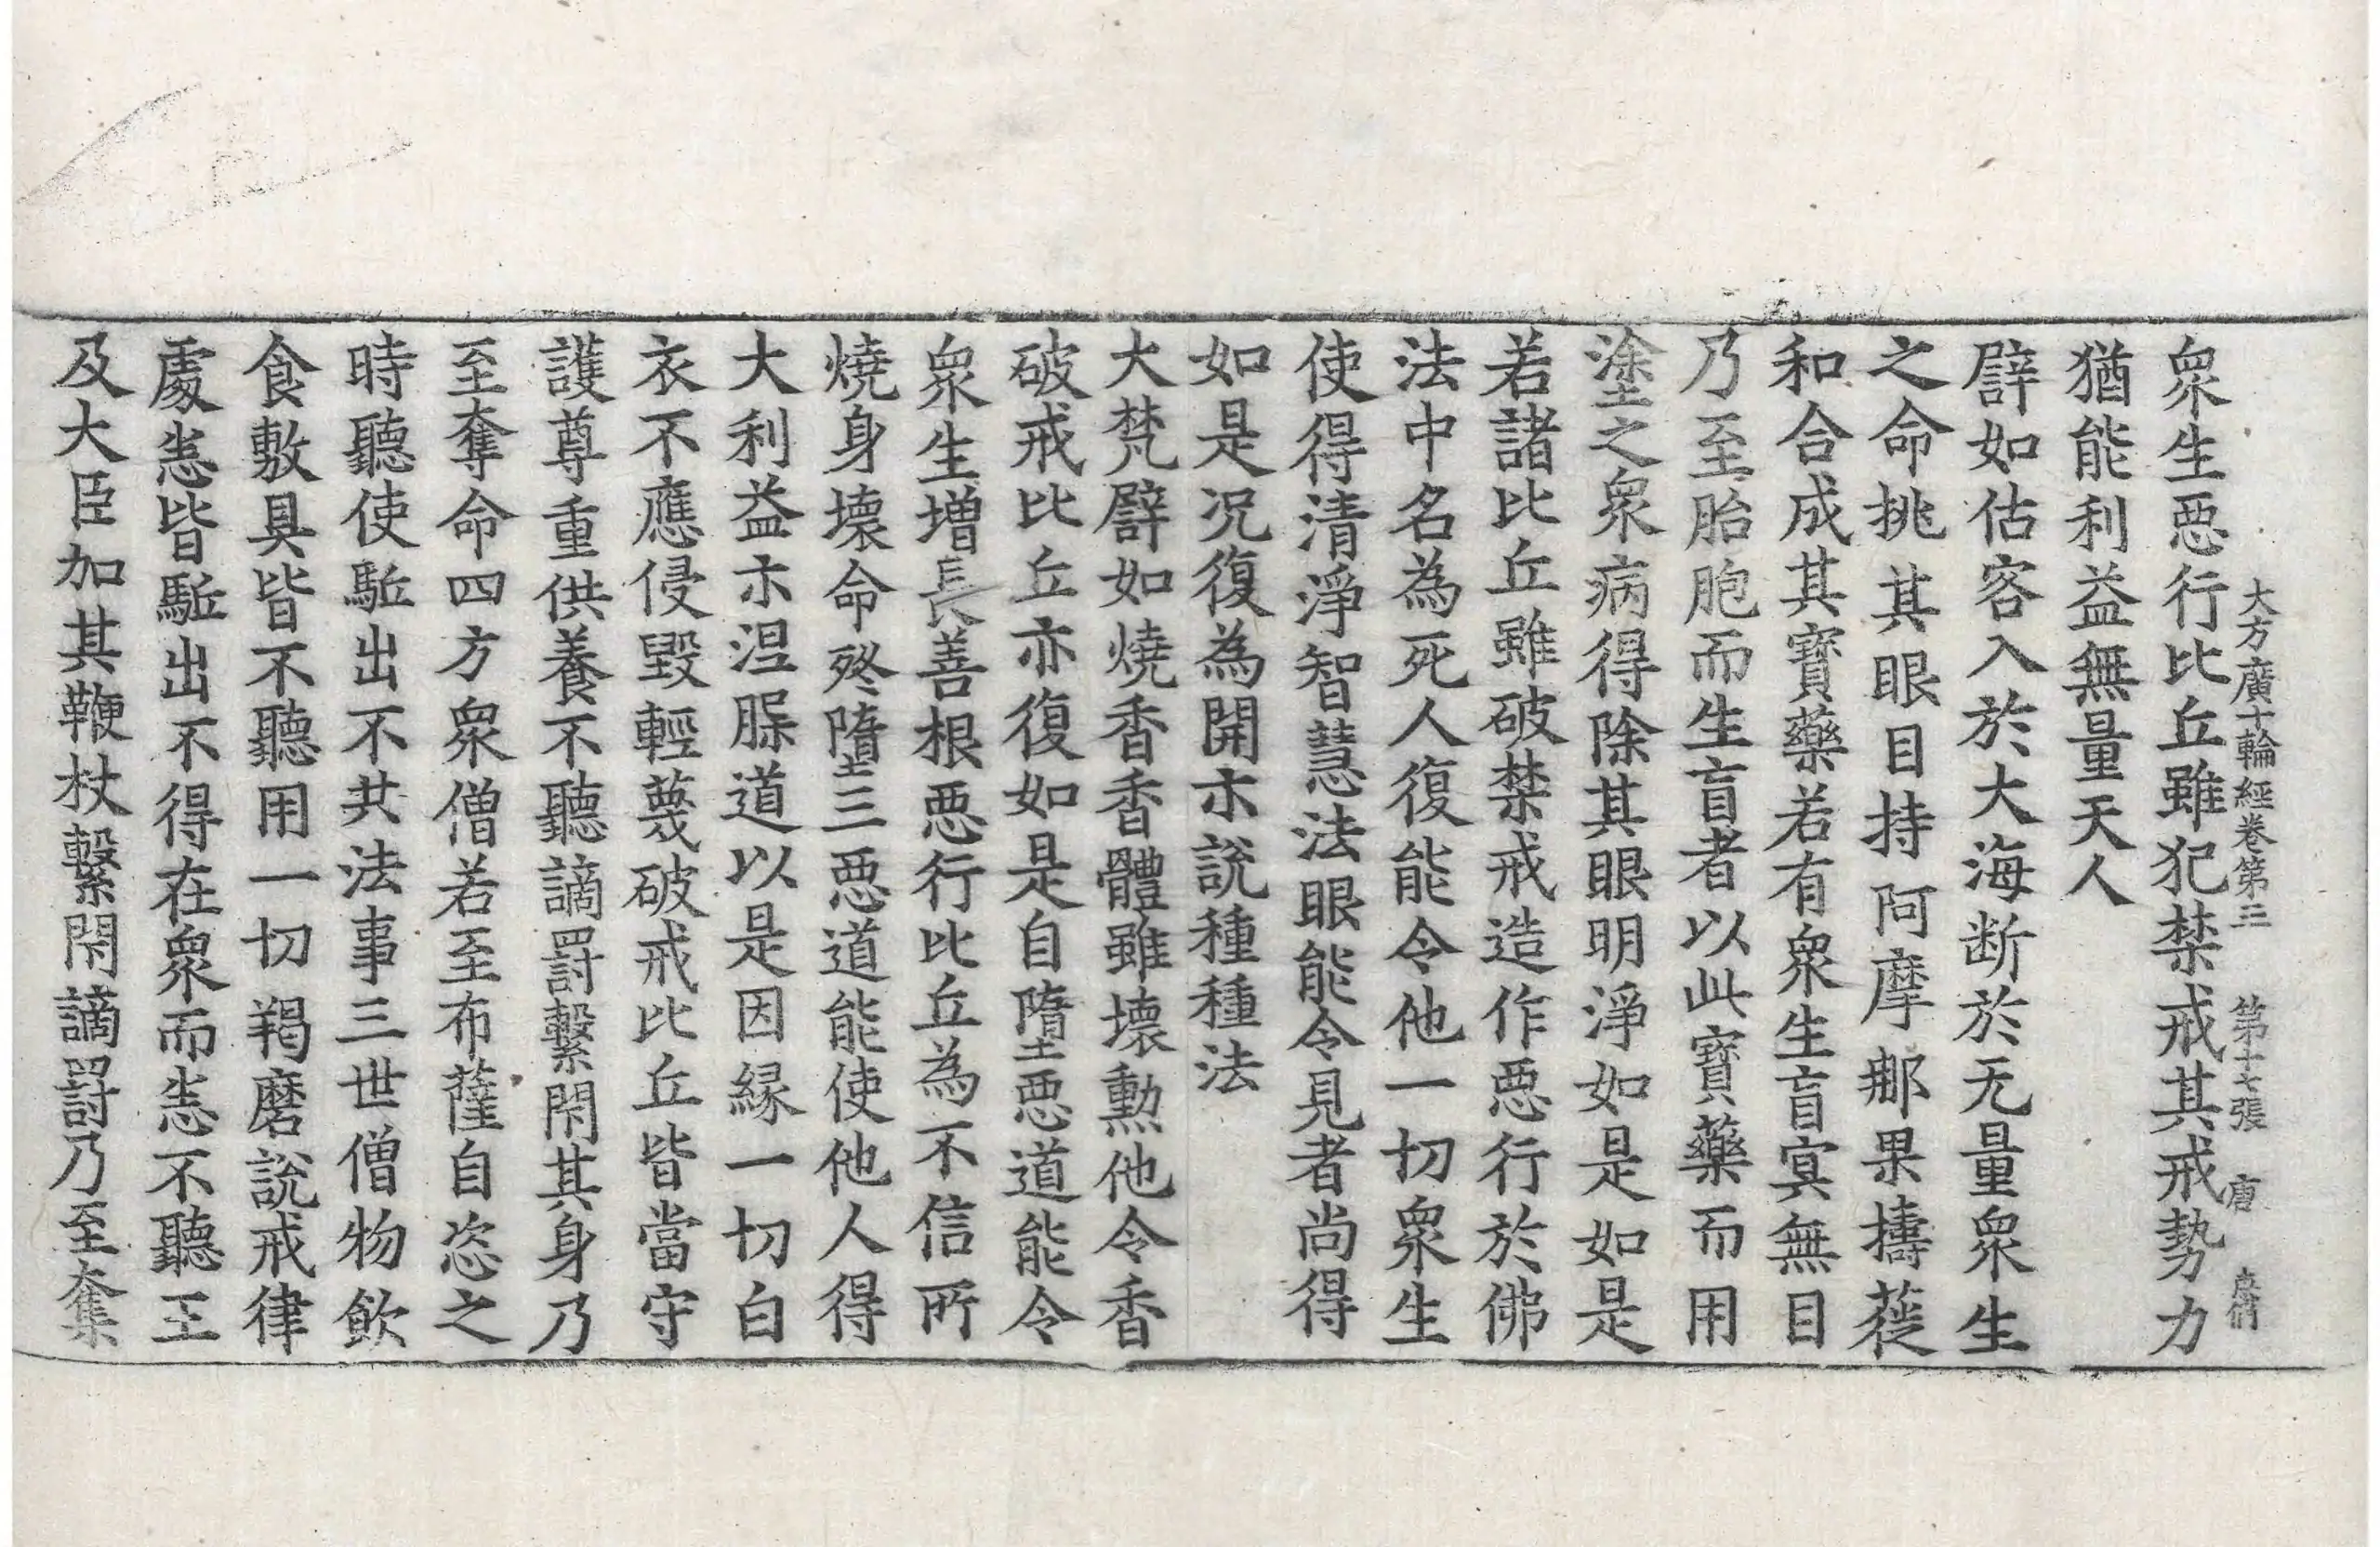 大方廣十輪經卷第三 第十七張 唐
衆生惡行比丘雖犯禁戒其戒勢力
猶能利益無量天人
譬如估客入於大海断於无量衆生
之命挑其眼目持阿摩𨚗果擣簁
和合成其寶藥若有衆生盲㝠無目
乃至胎胞而生盲者以此寶藥而用
塗之衆病得除其眼明淨如是如是
若諸比丘雖破禁戒造作惡行於佛
法中名為死人復能令他一切衆生
使得清淨智慧法眼能令見者尚得
如是况復為開示說種種法
大梵譬如燒香香體雖壞勲他令香
破戒比丘亦復如是自墮惡道能令
衆生增長善根惡行比丘為不信所
燒身壞命終墮三惡道能使他人得
大利益示涅縣道以是因緣一切白
衣不應侵毀輕蔑破戒比丘皆當守
護尊重供養不聽謫罰繫閇其身乃
至奪命四方衆僧若至布薩自恣之
時聽使駈出不共法事三世僧物飲
食敷具皆不聽用一切羯磨說戒律
處恚皆駈出不得在衆而恚不聽王
及大臣加其鞭杖繫閇謫罰乃至奪